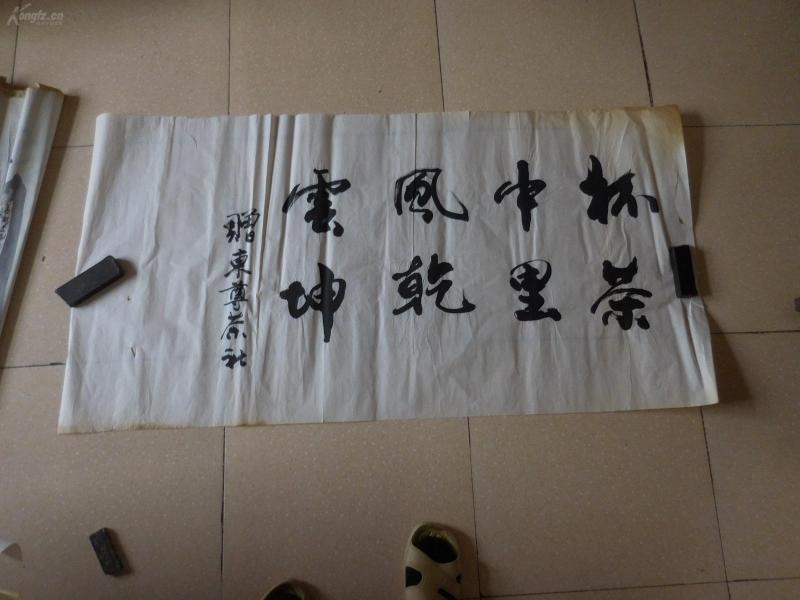 杯中風雲
茶里乾坤
贈東尊茶社
Kongfz.cn